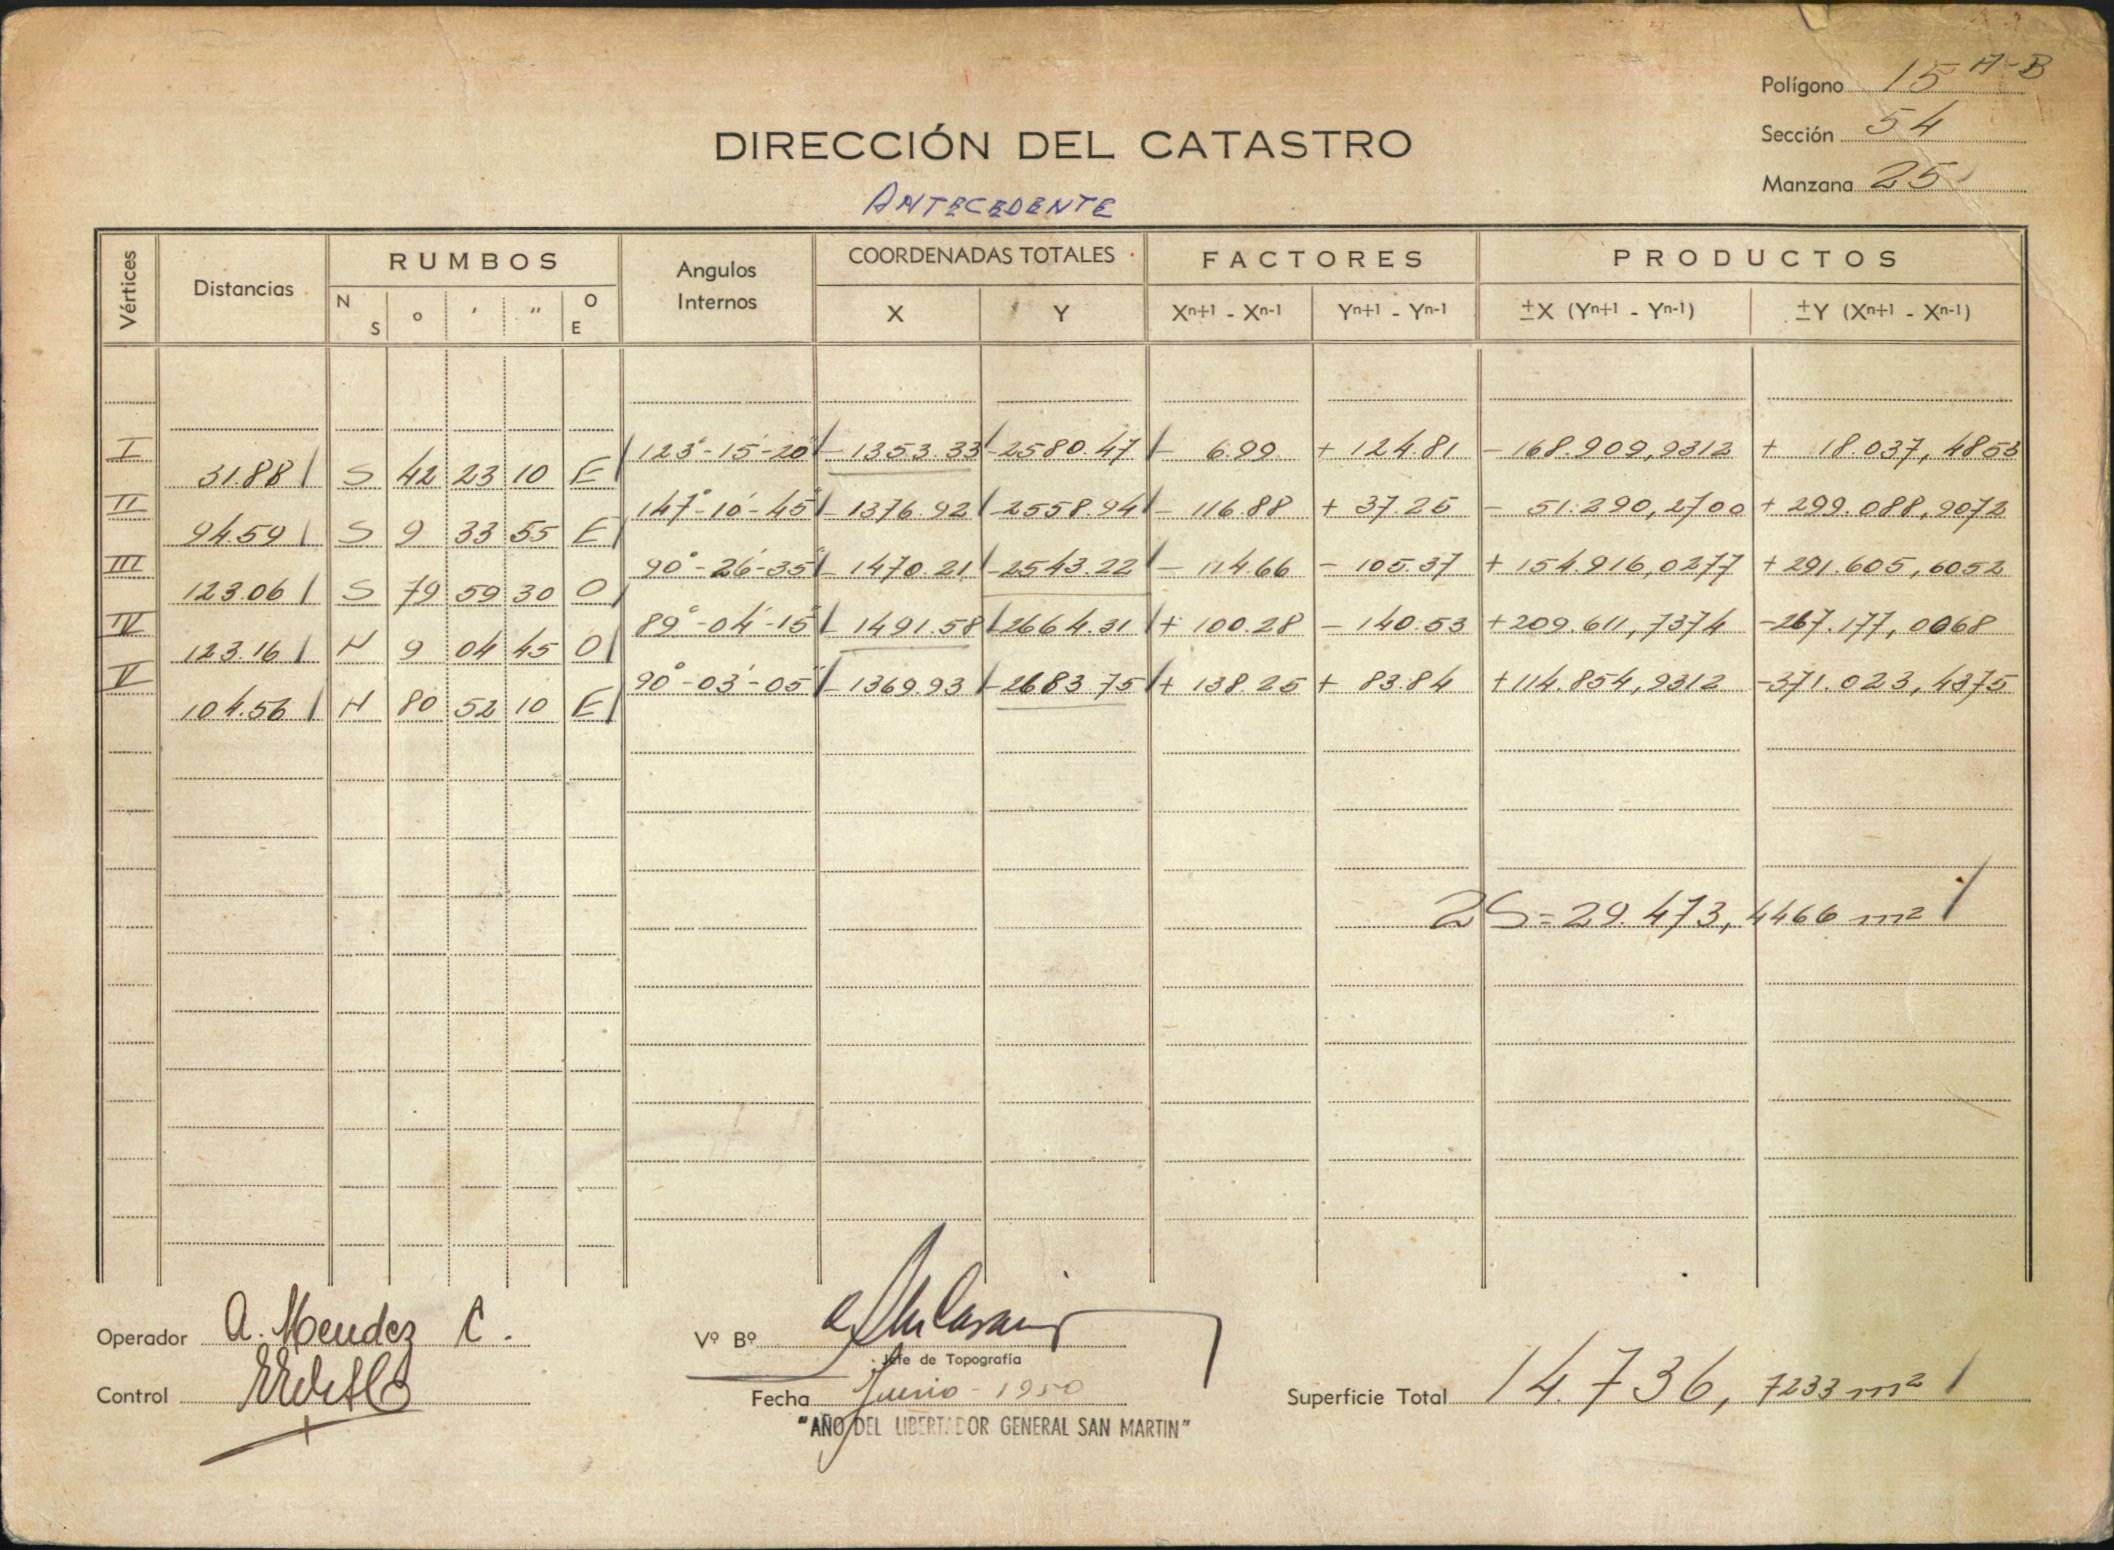 Polígono 15 A-B
Sección 54
Manzana 25
DIRECCIÓN DEL CATASTRO
ANTECEDENTE
Vértices Distancias RUMBOS Angulos Internos COORDENADAS TOTALES FACTORES PRODUCTOS
N S ° ' " O E X Y Xn+1 - Xn-1 Yn+1 - Yn-1 ±X (Yn+1 - Yn-1) ±Y (Xn+1 - Xn-1)
I 123°-15'-20" - 1353.33 -2580.47 - 6.99 + 124.81 - 168.909,9312 + 18.037,4853
31.88 S 42 23 10 E
II 147°-10'-45" - 1376.92 -2558.94 - 116.88 + 37.25 - 51.290,2700 + 299.088,9072
94.59 S 9 33 55 E
III 90°-26'-35" - 1470.21 -2543.22 - 114.66 - 105.37 + 154.916,0277 + 291.605,6052
123.06 S 79 59 30 O
IV 89°-04'-15" - 1491.58 -2664.31 + 100.28 - 140.53 +209.611,7374 -267.177,0068
123.16 N 9 04 45 O
V 90°-03'-05" - 1369.93 -2683.75 + 138.25 + 83.84 +114.854,9312 -371.023,4375
104.56 N 80 52 10 E
2S=29.473,4466 m²
Operador A. Mendez C.
Vº Bº
Jefe de Topografía
Control
Fecha Junio - 1950
Superficie Total 14.736,7233 m²
"AÑO DEL LIBERTADOR GENERAL SAN MARTIN"